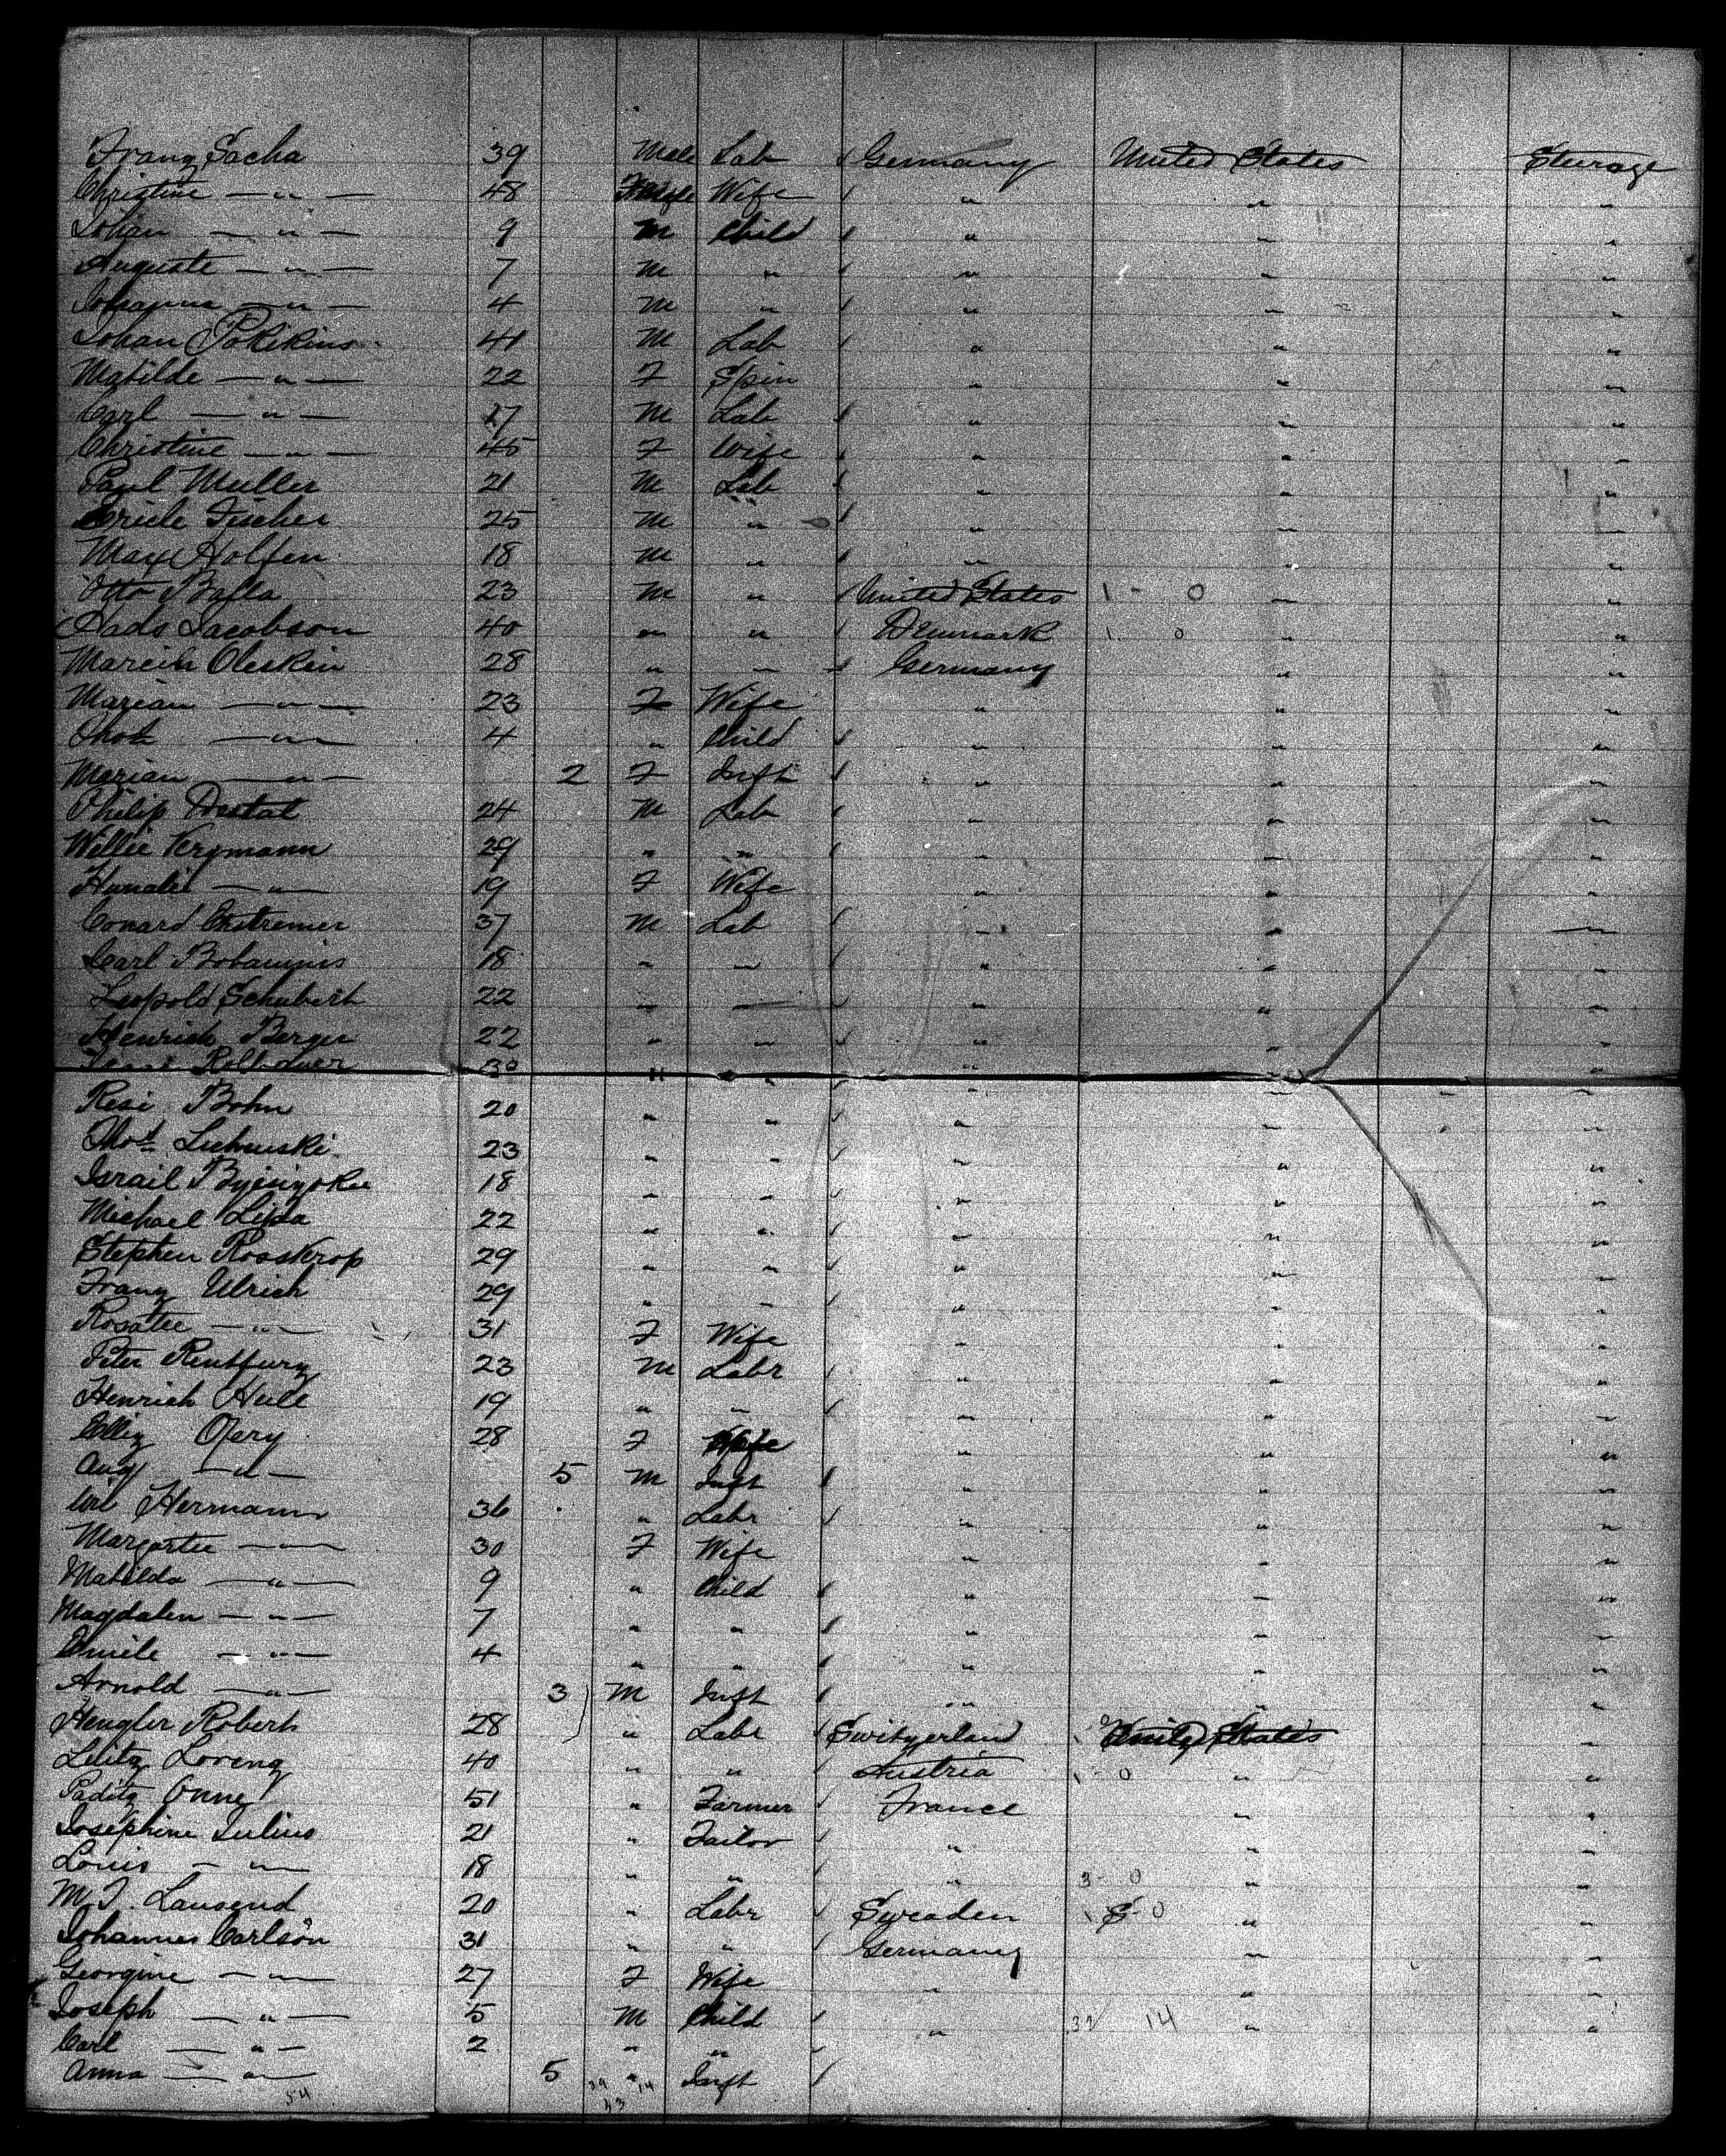 Franz Sacha 39 Male Lab Germany United States Steerage
Christine — " — 48 Female Wife " " "
Johan — " — 9 M Child " " "
Auguste — " — 7 M " " " "
Johanna — " — 4 M " " " "
Johan Pokikins 41 M Lab " " "
Matilde — " — 22 F Spin " " "
Carl — " — 17 M Lab " " "
Christine — " — 45 F Wife " " "
Paul Muller 21 M Lab " " "
Fischer 25 M " " " "
Max Holfen 18 M " " " "
Otto Balla 23 M " United States 1 - 0 " "
Mads Jacobson 40 " " Denmark 1 0 " "
Oleskin 28 " " Germany " "
Marian — " — 23 F Wife " " "
4 " Child " " "
Marian — " — 2 F Inft " " "
Philip 24 M Lab " " "
Willie Vergmann 29 " " " " "
— " — 19 F Wife " " "
Conard 37 M Lab " " "
Carl 18 " " " " "
Leopold Schubert 22 " " " " "
Henrich Berger 22 " " " " "
30 " " " " "
Resi Bohn 20 " " " " "
Thos 23 " " " " "
Israil 18 " " " " "
Michael Lipa 22 " " " " "
Stephen Rosskrop 29 " " " " "
Franz Ulrich 29 " " " " "
Rosatee — " — 31 F Wife " " "
Peter 23 M Labr " " "
Henrich Hull 19 " " " " "
28 F Wife " " "
Aug — " — 5 M Inft " " "
Herrmann 36 " Labr " " "
Margartee — " — 30 F Wife " " "
Matilda — " — 9 " Child " " "
Magdalen — " — 7 " " " " "
Emile — " — 4 " " " " "
Arnold — " — 3 M Inft " " "
Hengler Robert 28 " Labr Switzerland United States
Lorenz 40 " " Austria 1 - 0 " "
51 " Farmer France " "
Josephine Julius 21 " Tailor " " "
Louis — " — 18 " " " 3 - 0 " "
M. J. Lausend 20 " Labr Sweaden 1 - 0 " "
Johannes Carlson 31 " " Germany " "
Georgine — " — 27 F Wife " " "
Joseph — " — 5 M Child " 32 14 " "
Carl — " — 2 " "
Anna — " — 5 " Inft
54